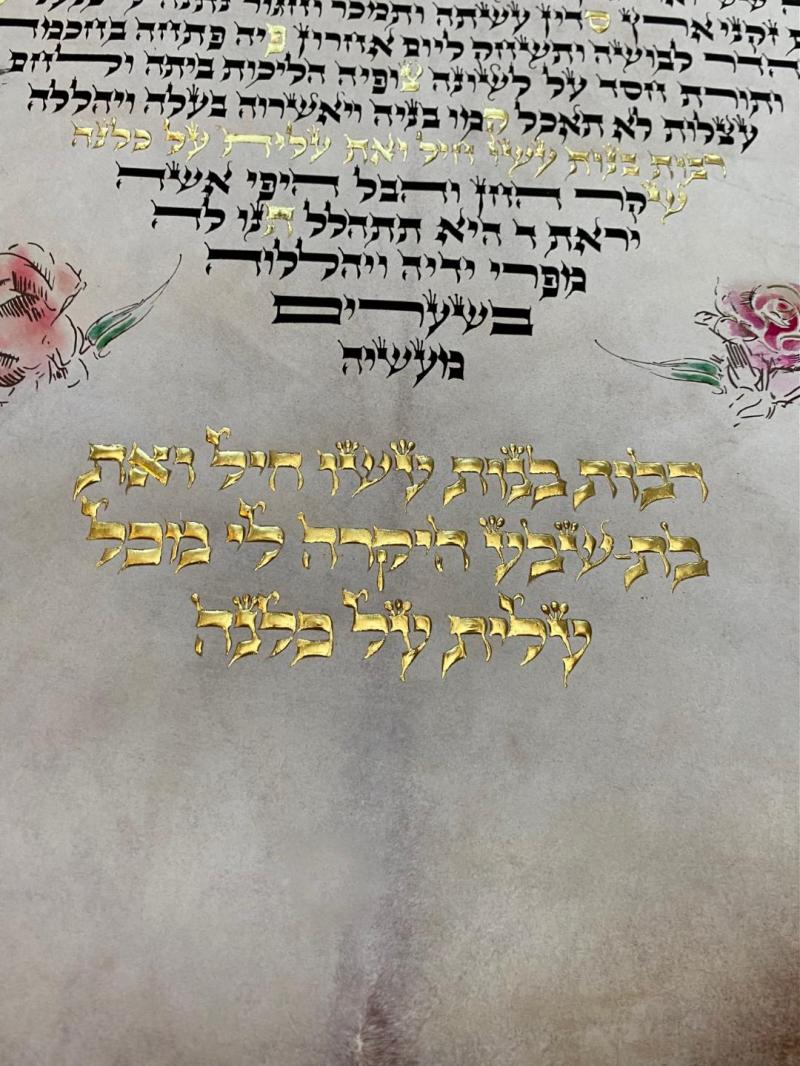 זקני ארץ סדין עשתה ותמכר וחגור נתנה
הדר לבושה ותשחק ליום אחרון פיה פתחה בחכמה
ותורת חסד על לשונה צופיה הליכות ביתה ולחם
עצלות לא תאכל קמו בניה ויאשרוה בעלה ויהללה
רבות בנות עשו חיל ואת עלית על כלנה
שקר החן והבל היפי אשה
יראת ד היא תתהלל תנו לה
מפרי ידיה ויהללוה
בשערים
מעשיה
רבות בנות עשו חיל ואת
בת-שבע היקרה לי מכל
עלית על כלנה